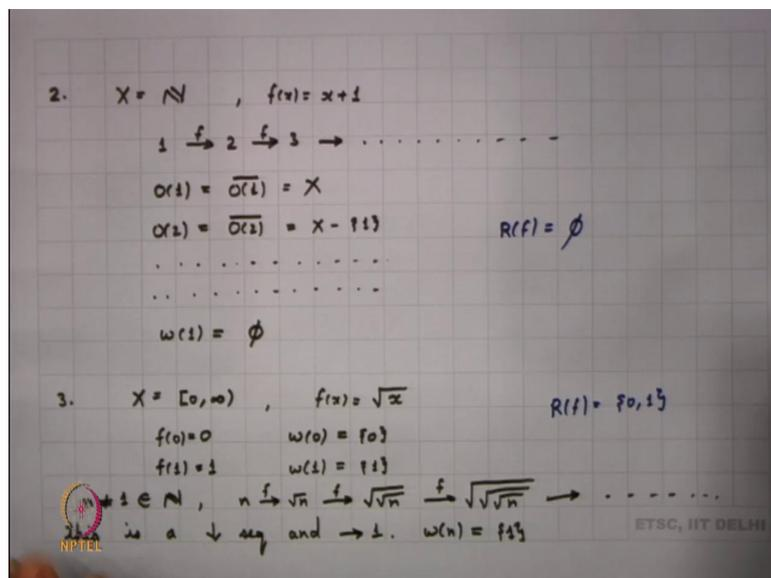 2. X = ℕ , f(x) = x+1
1 →f 2 →f 3 → . . . . . . . . . . .
O(1) = \overline{O(1)} = X
O(2) = \overline{O(2)} = X - {1}
R(f) = ∅
. . . . . . . . . . . .
. . . . . . . . . . . .
ω(1) = ∅
3. X = [0,∞) , f(x) = √x
R(f) = {0,1}
f(0)=0 ω(0) = {0}
f(1)=1 ω(1) = {1}
≠ 1 ∈ ℕ, n →f √n →f √√n →f √√√n → . . . . . . .
is a ↓ seq and → 1. ω(n) = {1}
ETSC, IIT DELHI
NPTEL